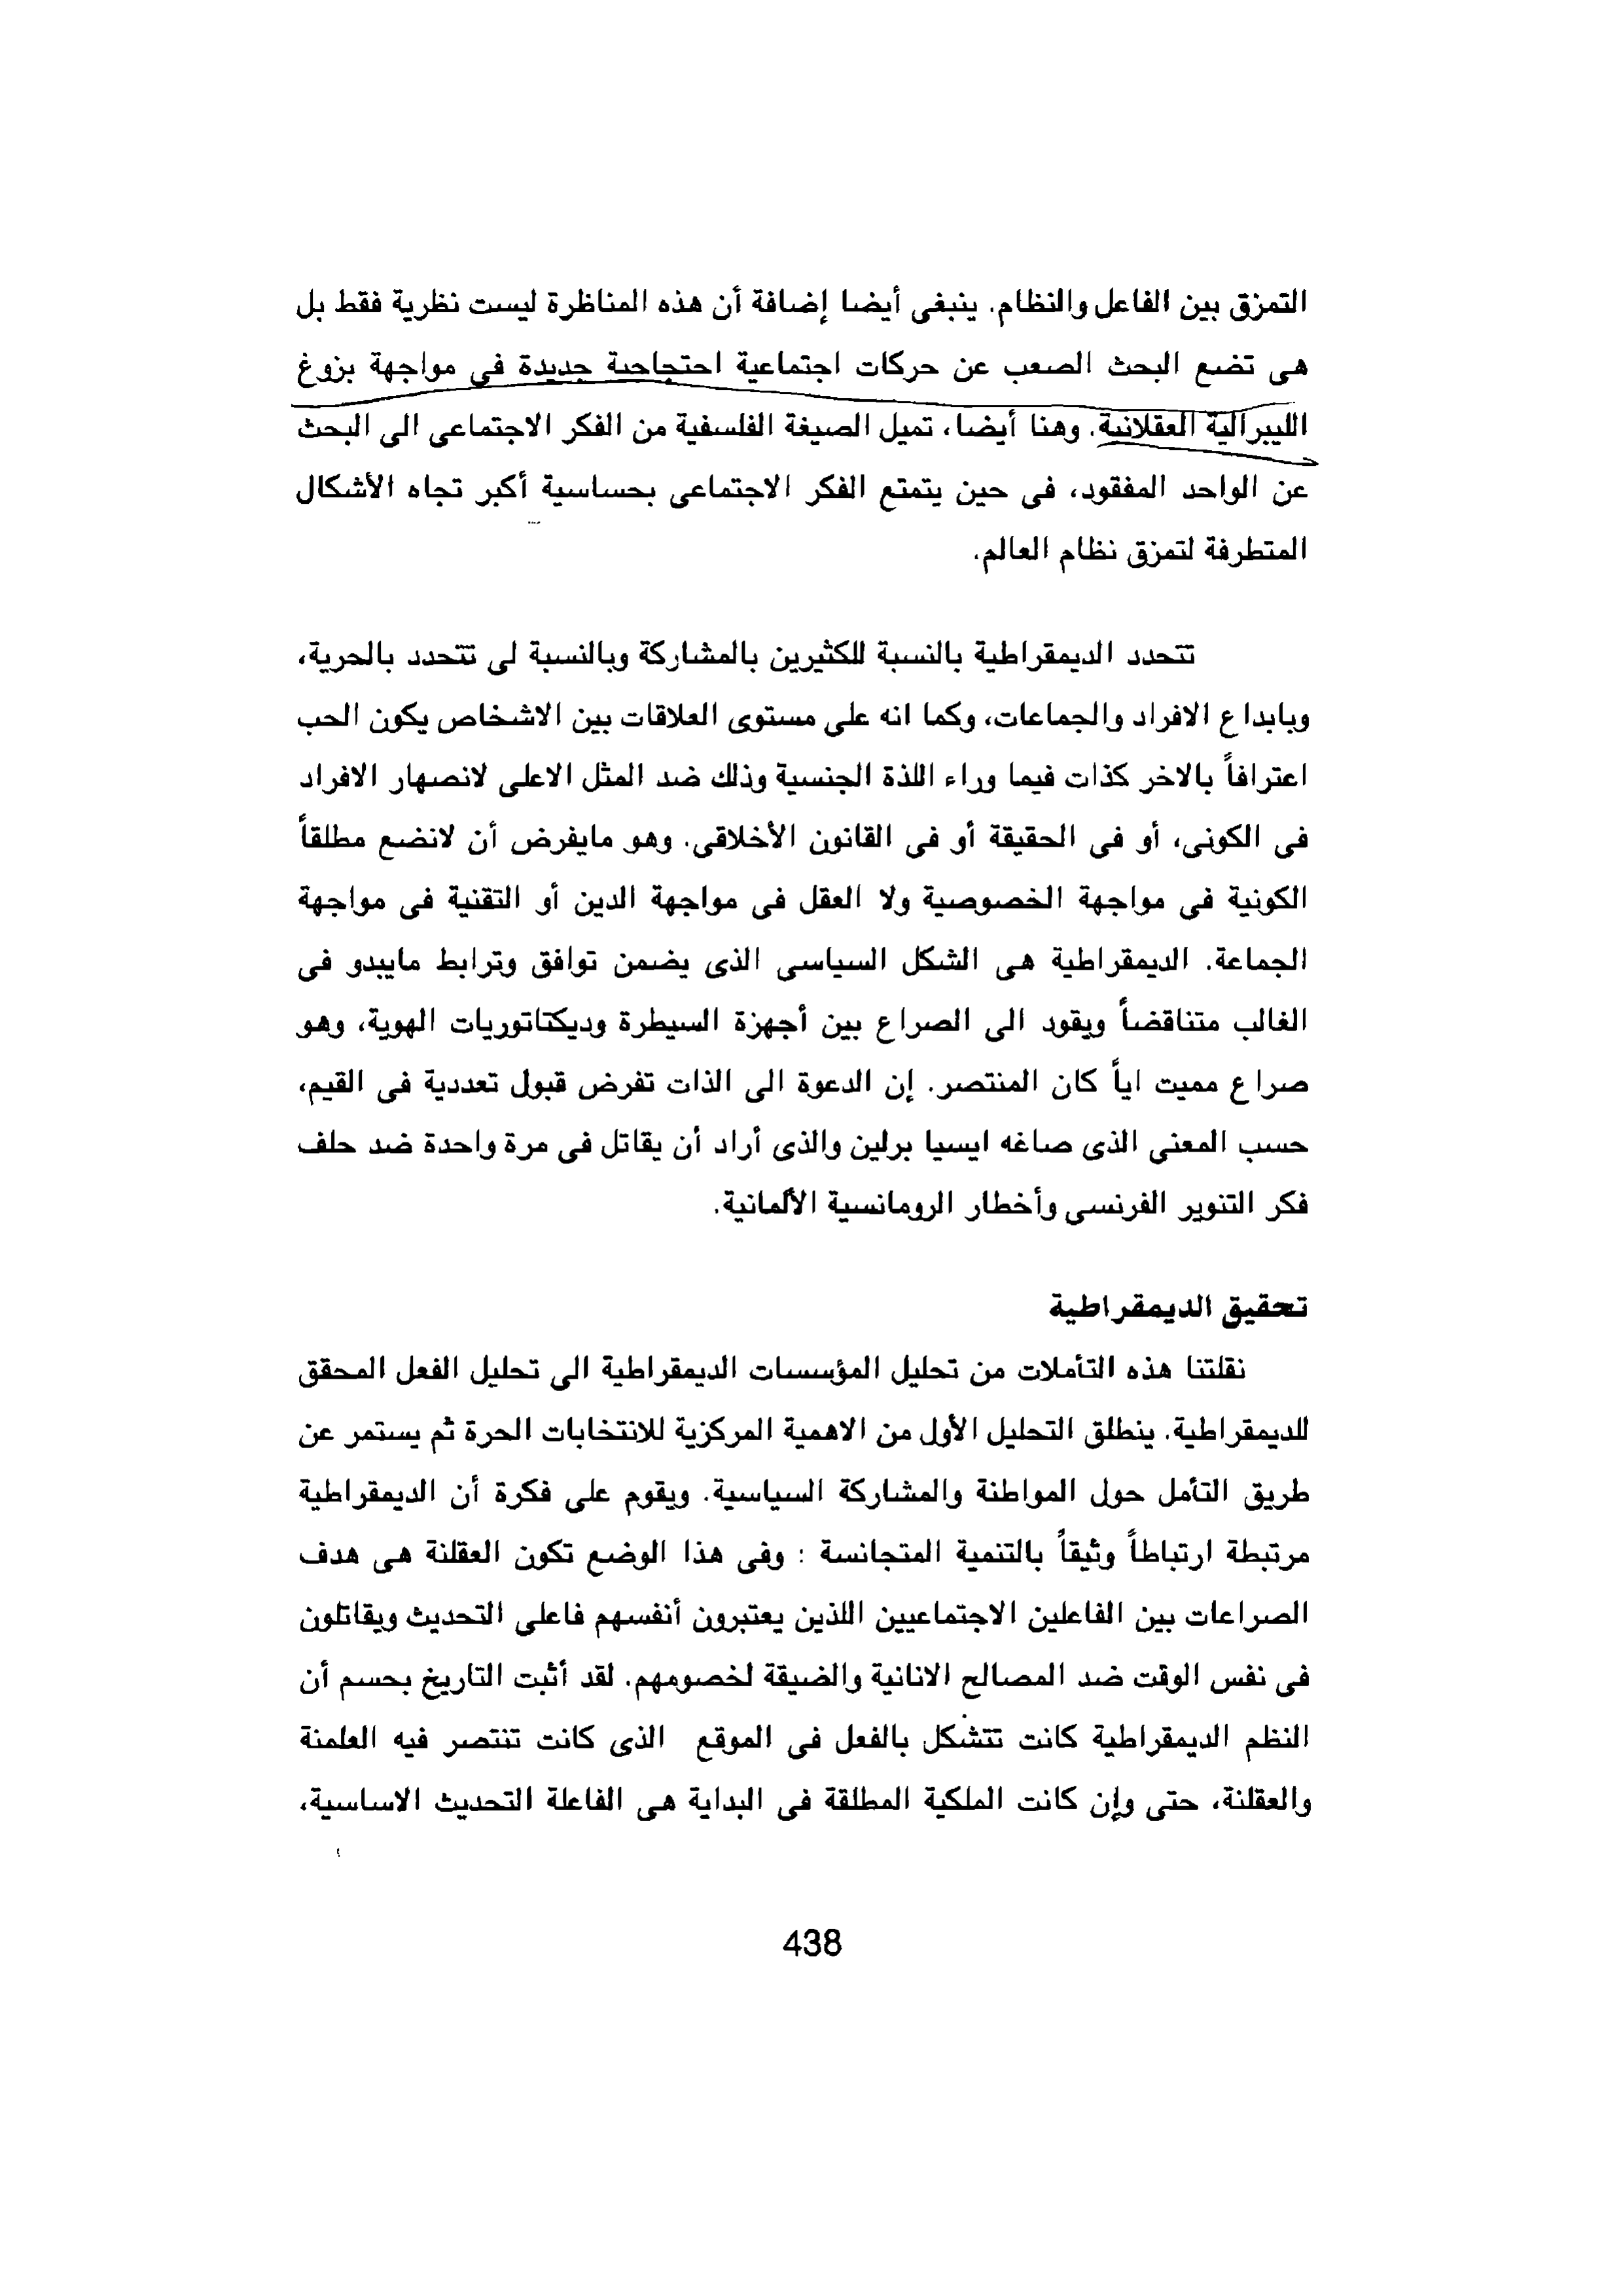 التمزق بين الفاعل والنظام. ينبغى أيضا إضافة أن هذه المناظرة ليست نظرية فقط بل
هى تضع البحث الصعب عن حركات اجتماعية احتجاجية جديدة فى مواجهة بزوغ
الليبرالية العقلانية. وهنا أيضا، تميل الصيغة الفلسفية من الفكر الاجتماعى الى البحث
عن الواحد المفقود، فى حين يتمتع الفكر الاجتماعى بحساسية أكبر تجاه الأشكال
المتطرفة لتمزق نظام العالم.
تتحدد الديمقراطية بالنسبة للكثيرين بالمشاركة وبالنسبة لى تتحدد بالحرية،
وبابداع الافراد والجماعات، وكما انه على مستوى العلاقات بين الاشخاص يكون الحب
اعترافاً بالاخر كذات فيما وراء اللذة الجنسية وذلك ضد المثل الاعلى لانصهار الافراد
فى الكونى، أو فى الحقيقة أو فى القانون الأخلاقى. وهو مايفرض أن لانضع مطلقاً
الكونية فى مواجهة الخصوصية ولا العقل فى مواجهة الدين أو التقنية فى مواجهة
الجماعة. الديمقراطية هى الشكل السياسى الذى يضمن توافق وترابط مايبدو فى
الغالب متناقضاً ويقود الى الصراع بين أجهزة السيطرة وديكتاتوريات الهوية، وهو
صراع مميت اياً كان المنتصر. إن الدعوة الى الذات تفرض قبول تعددية فى القيم،
حسب المعنى الذى صاغه ايسيا برلين والذى أراد أن يقاتل فى مرة واحدة ضد حلف
فكر التنوير الفرنسى وأخطار الرومانسية الألمانية.
تحقيق الديمقراطية
نقلتنا هذه التأملات من تحليل المؤسسات الديمقراطية الى تحليل الفعل المحقق
للديمقراطية. ينطلق التحليل الأول من الاهمية المركزية للانتخابات الحرة ثم يستمر عن
طريق التأمل حول المواطنة والمشاركة السياسية. ويقوم على فكرة أن الديمقراطية
مرتبطة ارتباطاً وثيقاً بالتنمية المتجانسة : وفى هذا الوضع تكون العقلنة هى هدف
الصراعات بين الفاعلين الاجتماعيين اللذين يعتبرون أنفسهم فاعلى التحديث ويقاتلون
فى نفس الوقت ضد المصالح الانانية والضيقة لخصومهم. لقد أثبت التاريخ بحسم أن
النظم الديمقراطية كانت تتشكل بالفعل فى الموقع الذى كانت تنتصر فيه العلمنة
والعقلنة، حتى وإن كانت الملكية المطلقة فى البداية هى الفاعلة التحديث الاساسية،
438